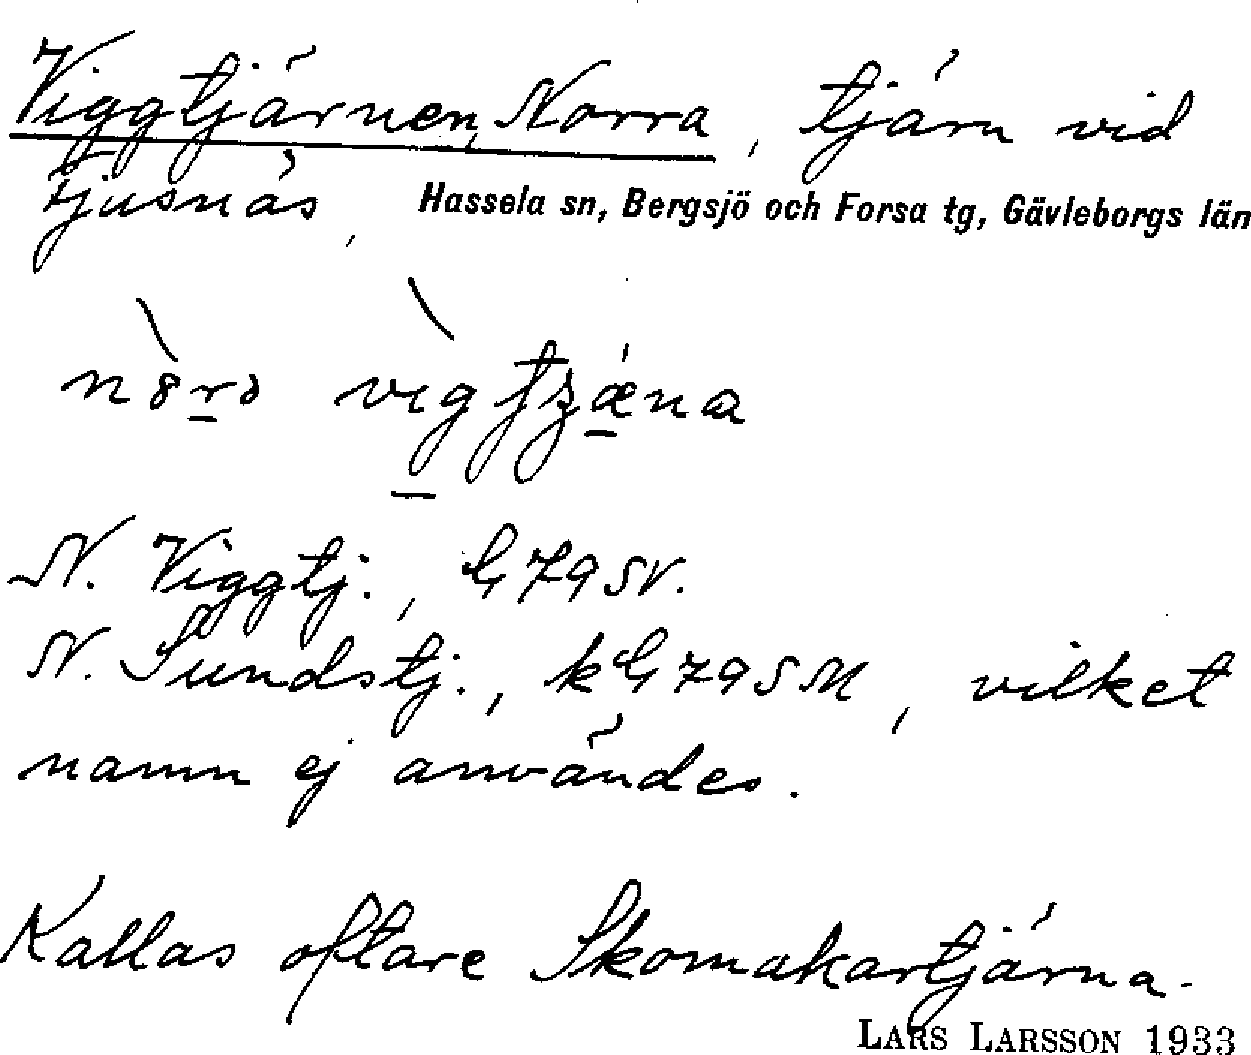 Viggtjärnen, Norra, tjärn vid
Tjusnäs, Hassela sn, Bergsjö och Forsa tg, Gävleborgs län
N. Viggtj., G79SV.
N. Sundstj., kG79SM, vilket
namn ej användes.
Kallas oftare Skomakartjärna.
LARS LARSSON 1933